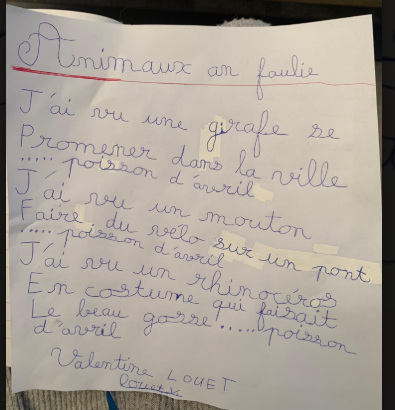 Animaux an faulie
J'ai vu une girafe se
Promener dans la ville
..... poisson d'avril
J'ai vu un mouton
Faire du vélo sur un pont
..... poisson d'avril
J'ai vu un rhinocéros
En costume qui faisait
Le beau gosse ..... poisson
d'avril
Valentine LOUET
louet v.